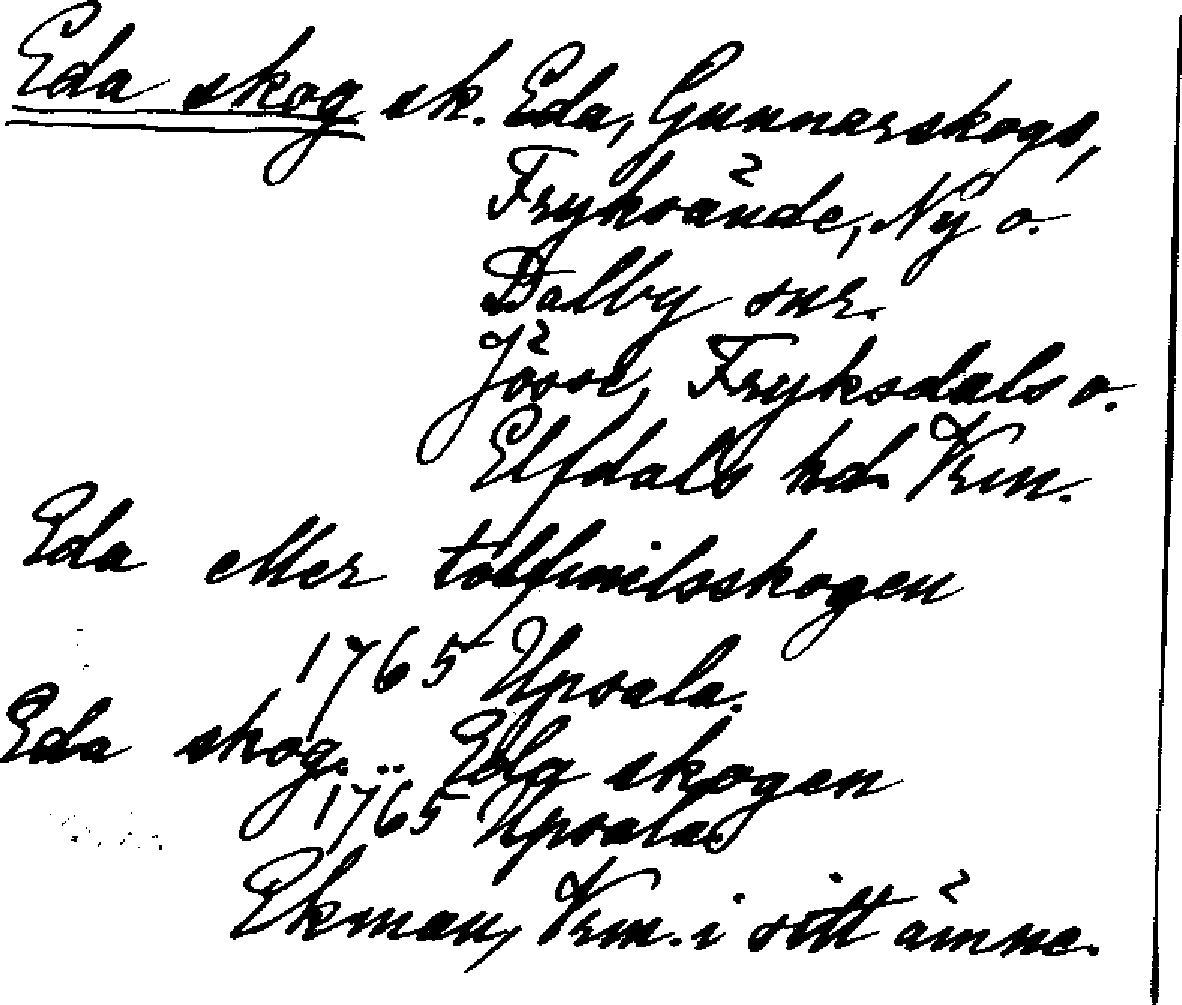 Eda skog sk. Eda, Gunnarskogs,
Frykände, Ny o.
Dalby snr.
Jösse, Fryksdals o.
Elfdals hd. Vrm.
Eda eller tolfmilsskogen
1765 Upsala.
Eda skog... Edg skogen
1765 Upsala
Ekman, Vrm. i sitt ämne.